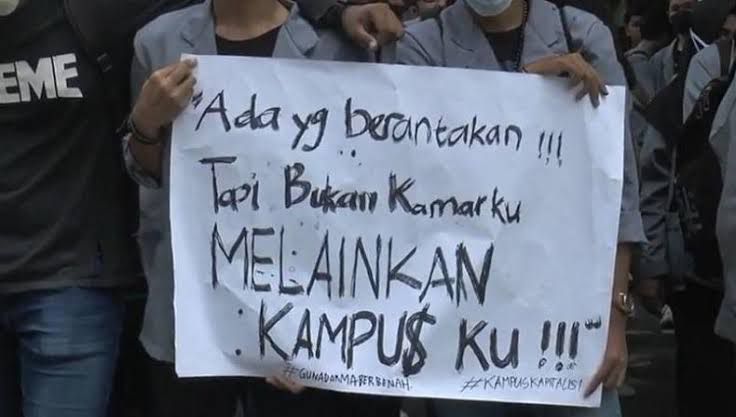 EME
"Ada yg berantakan !!!
Tapi Bukan Kamarku
MELAINKAN
KAMPU$ KU !!!"
#GUNADARMABERBENAH. #KAMPUSKAPITALIS!